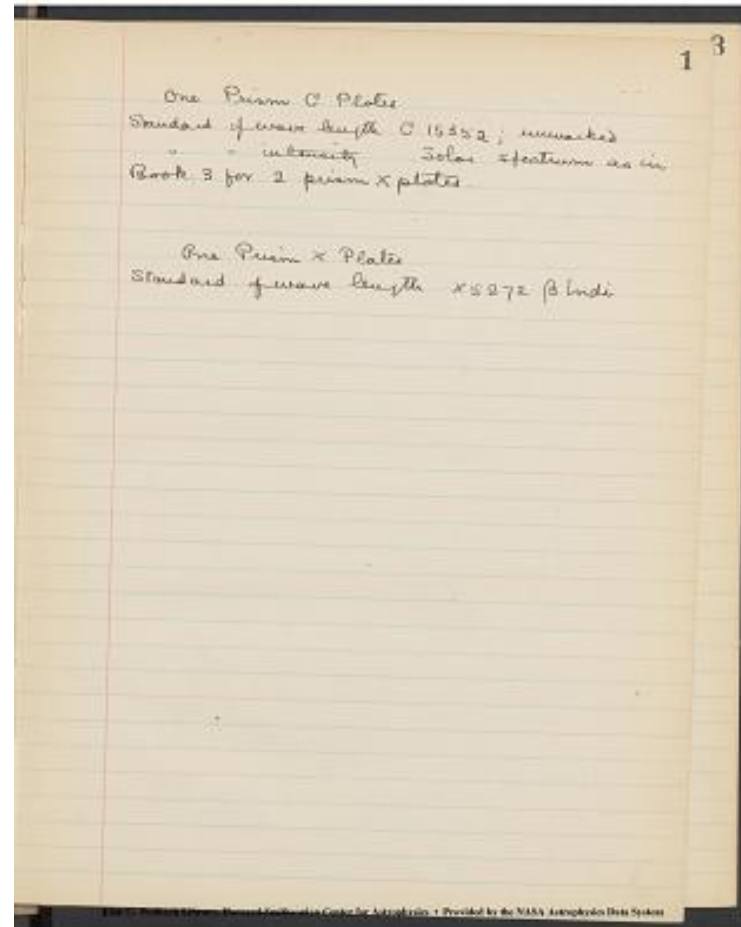 1 3
One Prism C Plates
Standard of wave length C 15352; unmarked
" " intensity Solar spectrum as in
Book 3 for 2 prism X plates
One Prism X Plates
Standard of wave length X 5272 β Indi
Harvard-Smithsonian Center for Astrophysics • Provided by the NASA Astrophysics Data System